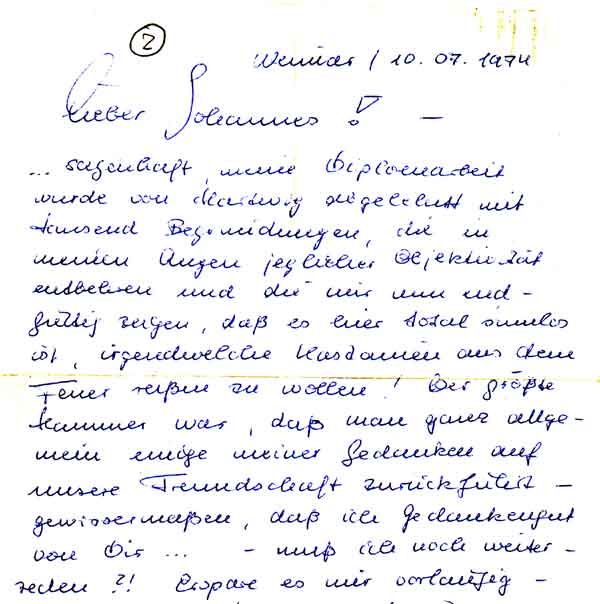 2
Weimar / 10. 07. 1974
Lieber Johannes! —
... sagenhaft, meine Diplomarbeit
wurde von Hartwig abgelehnt mit
tausend Begründungen, die in
meinen Augen jeglicher Objektivität
entbehren und die mir nun end-
gültig zeigen, daß es hier total sinnlos
ist, irgendwelche Kastanien aus dem
Feuer reißen zu wollen! Der größte
Hammer war, daß man ganz allge-
mein einige meiner Gedanken auf
unsere Freundschaft zurückführt —
gewissermaßen, daß ich Gedankengut
von Dir ... — muß ich noch weiter-
reden ?! Erspare es mir vorläufig —